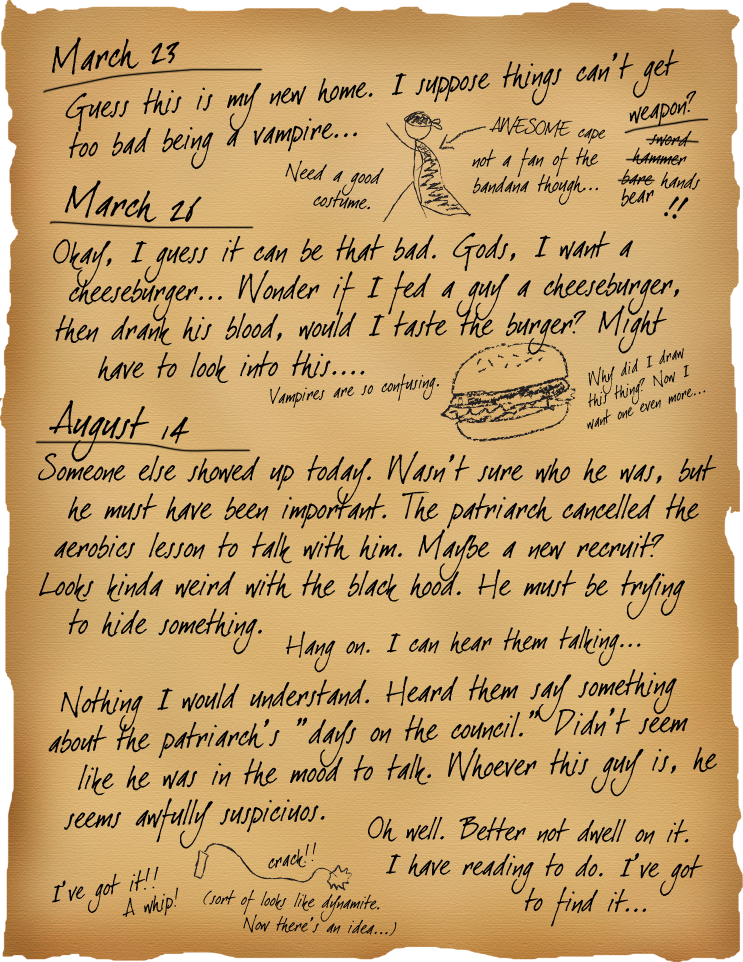 March 23
Guess this is my new home. I suppose things can't get
too bad being a vampire...
Need a good
costume.
AWESOME cape
not a fan of the
bandana though...
weapon?
sword
hammer
bare hands
bear !!
March 26
Okay, I guess it can be that bad. Gods, I want a
cheeseburger... Wonder if I fed a guy a cheeseburger,
then drank his blood, would I taste the burger? Might
have to look into this....
Vampires are so confusing.
Why did I draw
this thing? Now I
want one even more...
August 14
Someone else showed up today. Wasn't sure who he was, but
he must have been important. The patriarch cancelled the
aerobics lesson to talk with him. Maybe a new recruit?
Looks kinda weird with the black hood. He must be trying
to hide something.
Hang on. I can hear them talking...
Nothing I would understand. Heard them say something
about the patriarch's "days on the council." Didn't seem
like he was in the mood to talk. Whoever this guy is, he
seems awfully suspiciuos.
Oh well. Better not dwell on it.
I have reading to do. I've got
to find it...
I've got it!!
A whip!
crack!!
(sort of looks like dynamite.
Now there's an idea...)